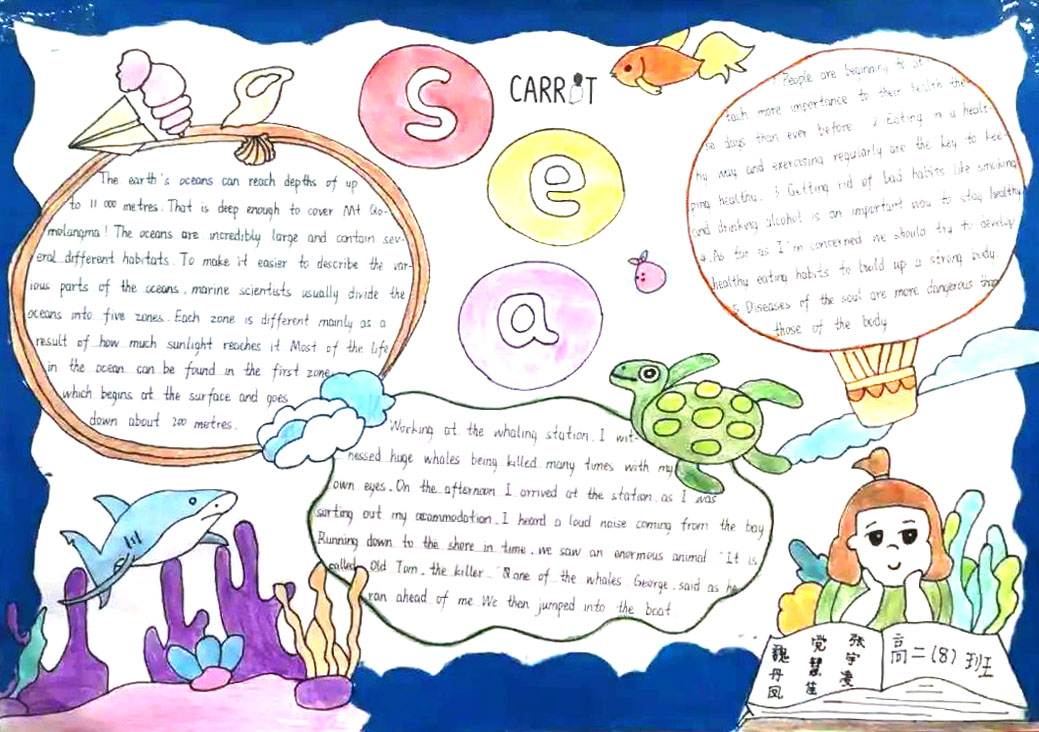 S
e
a
CARROT
The earth's oceans can reach depths of up
to 11 000 metres. That is deep enough to cover Mt Qo-
molangma! The oceans are incredibly large and contain sev-
eral different habitats. To make it easier to describe the var-
ious parts of the oceans, marine scientists usually divide the
oceans into five zones. Each zone is different mainly as a
result of how much sunlight reaches it Most of the life
in the ocean can be found in the first zone
which begins at the surface and goes
down about 200 metres.
1 People are beginning to at
tach more importance to their health the
se days than ever before 2 Eating in a healt-
hy way and exercising regularly are the key to kee-
ping healthy. 3 Getting rid of bad habits like smoking
and drinking alcohol is an important way to stay healthy
4. As far as I'm concerned we should try to develop
healthy eating habits to build up a strong body.
5 Diseases of the soul are more dangerous than
those of the body
Working at the whaling station, I wit-
nessed huge whales being killed many times with my
own eyes. On the afternoon I arrived at the station, as I was
sorting out my accommodation, I heard a loud noise coming from the bay
Running down to the shore in time, we saw an enormous animal "It is
called Old Tom, the killer." one of the whales, George, said as he
ran ahead of me. We then jumped into the boat.
高二(8)班
张宇凌
党慧笙
魏丹凤